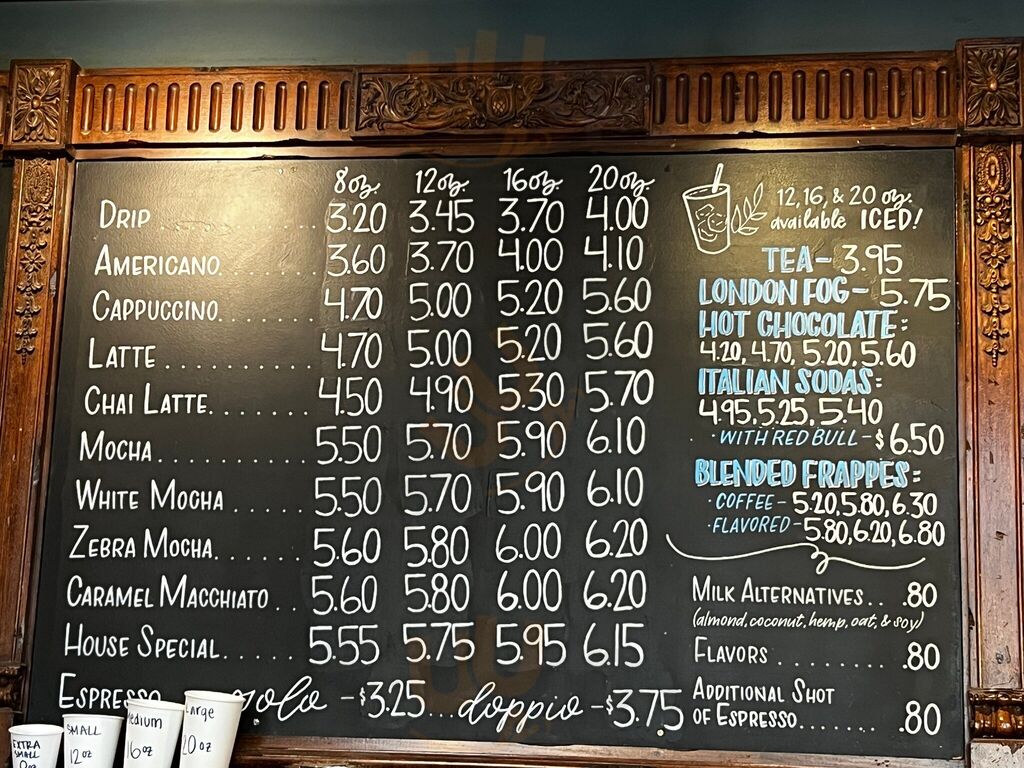 8oz. 12oz. 16oz. 20oz.
DRIP .......... 3.20 3.45 3.70 4.00
AMERICANO.......... 3.60 3.70 4.00 4.10
CAPPUCCINO.......... 4.70 5.00 5.20 5.60
LATTE .......... 4.70 5.00 5.20 5.60
CHAI LATTE........ 4.50 4.90 5.30 5.70
MOCHA .......... 5.50 5.70 5.90 6.10
WHITE MOCHA ..... 5.50 5.70 5.90 6.10
ZEBRA MOCHA...... 5.60 5.80 6.00 6.20
CARAMEL MACCHIATO .. 5.60 5.80 6.00 6.20
HOUSE SPECIAL..... 5.55 5.75 5.95 6.15
ESPRESSO solo -$3.25...doppio -$3.75
12, 16, & 20 oz.
available ICED!
TEA- 3.95
LONDON FOG- 5.75
HOT CHOCOLATE:
4.20, 4.70, 5.20, 5.60
ITALIAN SODAS:
4.95, 5.25, 5.40
·WITH RED BULL-$6.50
BLENDED FRAPPES:
·COFFEE- 5.20, 5.80, 6.30
·FLAVORED- 5.80, 6.20, 6.80
MILK ALTERNATIVES.. .80
(almond, coconut, hemp, oat, & soy)
FLAVORS ........ .80
ADDITIONAL SHOT
OF ESPRESSO....... .80
EXTRA
SMALL
SMALL
12 oz
Medium
16 oz
Large
20 oz